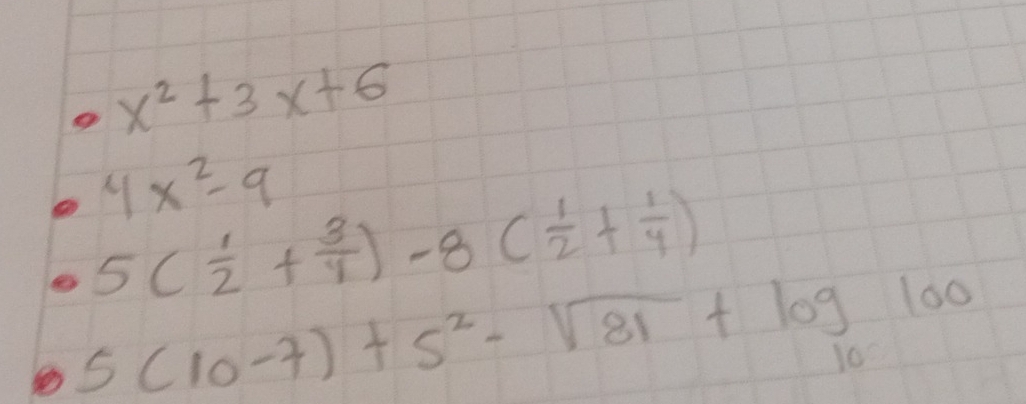 • x² + 3x + 6
• 4x² - 9
• 5 ( 1/2 + 3/4 ) - 8 ( 1/2 + 1/4 )
• 5 (10 - 7) + 5² - √81 + log₁₀ 100